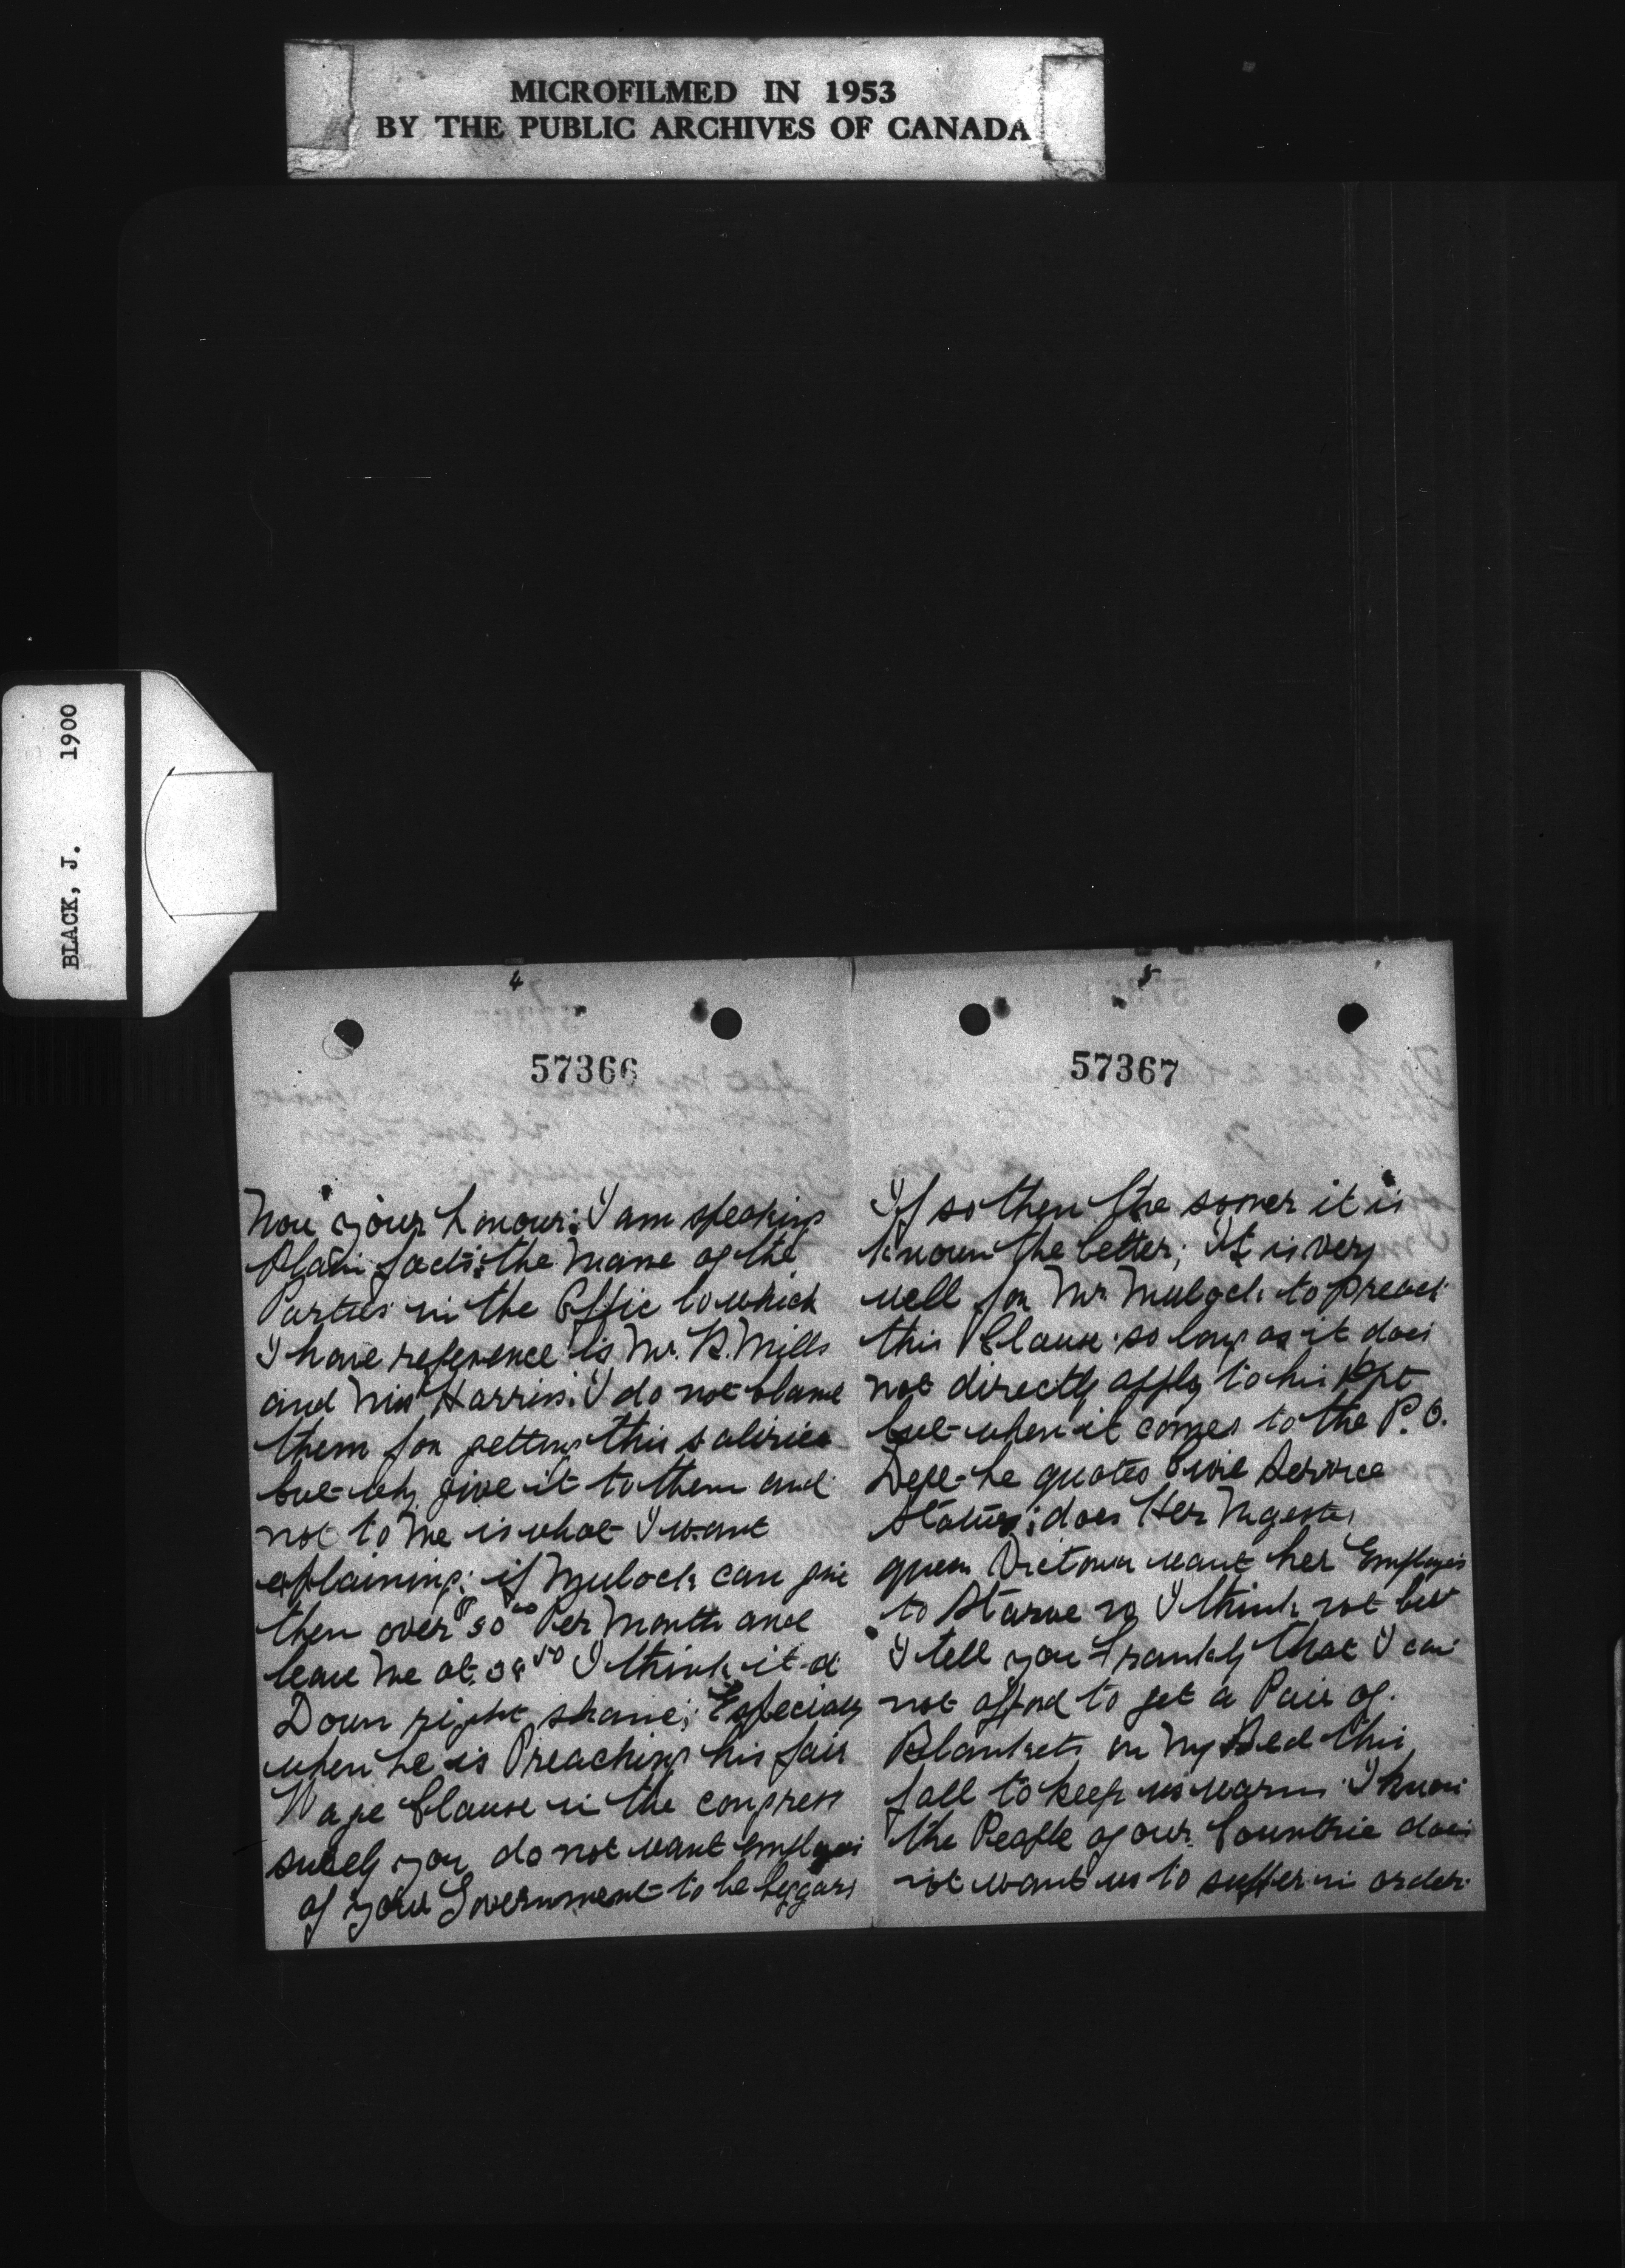 MICROFILMED IN 1953
BY THE PUBLIC ARCHIVES OF CANADA
BLACK, J. 1900
4
57366
Now your honour: I am speaking
Plain facts: the Name of the
Parties in the Offic to which
I have reference is Mr. B. Mills
and Miss Harriss. I do not blame
them for getting this saliries
but why give it to them and
not to Me is what I want
explaining: if Mulock can give
them over $50 00 Per Month and
leave Me at 50 I think it a
Down right shame; Especialy
when he is Preaching his fair
Wage Clause in the congress
surely you do not want employes
of your Government to be beggars
5
57367
If so then the sooner it is
known the better; It is very
well for Mr Mulock to preach
this Clause so long as it does
not directly apply to his Dpt
but when it comes to the P. O.
Dept he quotes Civil Service
Status; does Her Magesty
queen Victoria want her Employes
to Starve no I think not but
I tell you Frankly that I can
not afford to get a Pair of
Blankets on My Bed this
fall to keep us warm I know
the People of our Countrie does
not want us to suffer in order